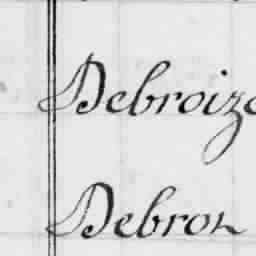 Debroize
Debron